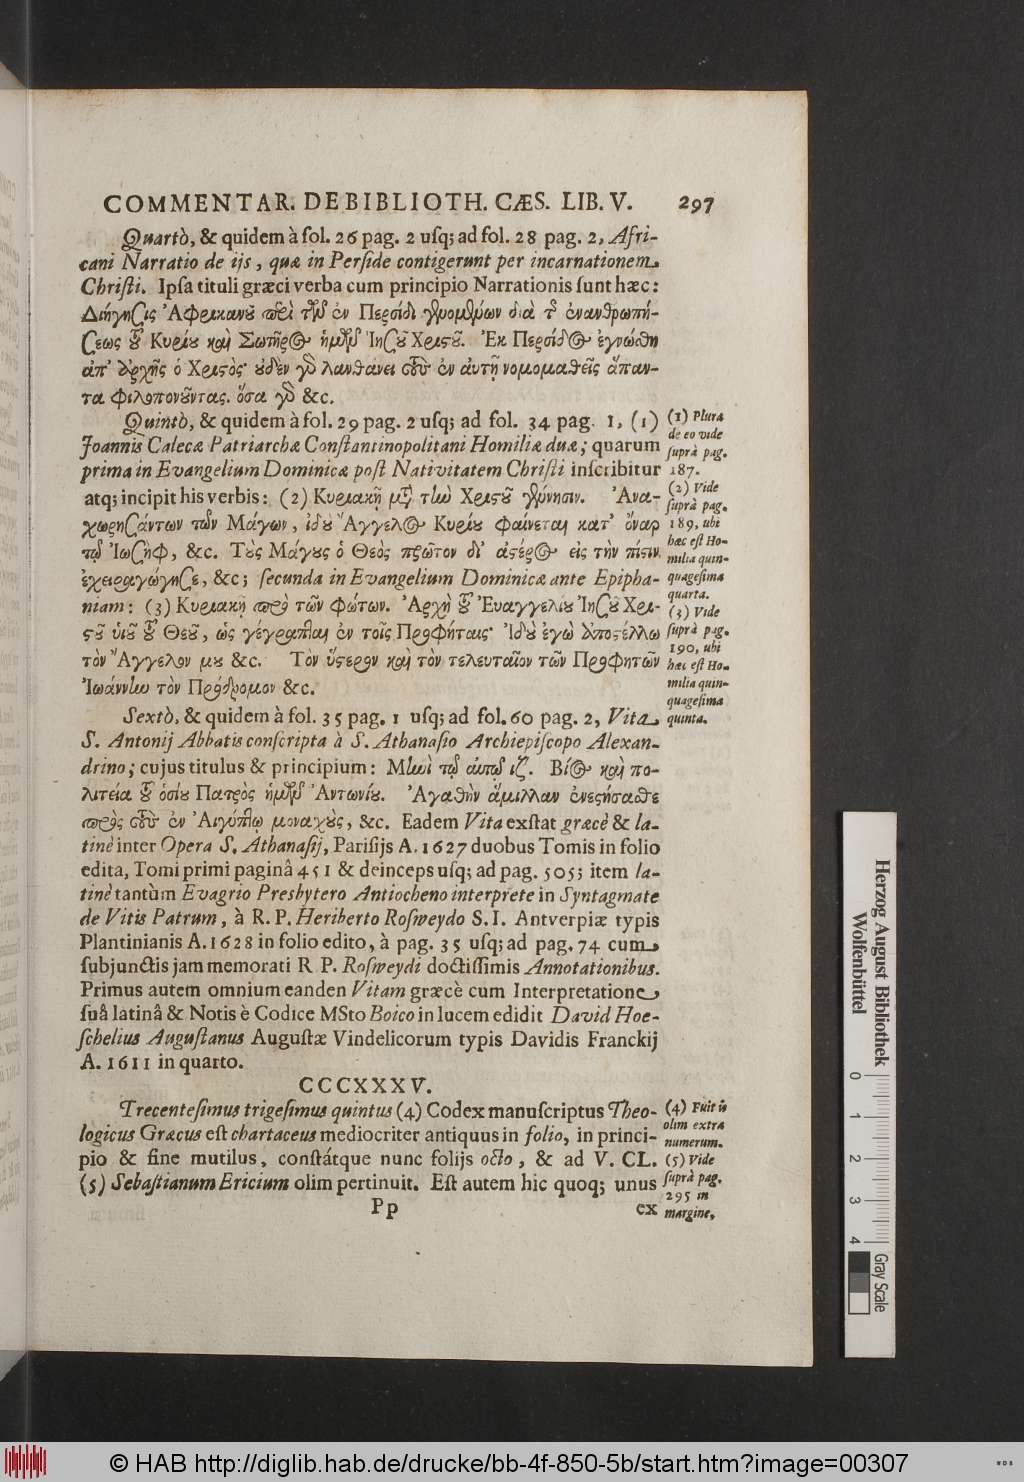 COMMENTAR. DE BIBLIOTH. CÆS. LIB. V. 297
Quartò, & quidem à fol. 26 pag. 2 uſq; ad fol. 28 pag. 2, Afri-
cani Narratio de ijs, quæ in Perſide contigerunt per incarnationem
Chriſti. Ipſa tituli græci verba cum principio Narrationis ſunt hæc:
Διήγησις Ἀφρικανοῦ περὶ τῶν ἐν Περσίδι γενομένων διὰ τῆς ἐνανθρωπή-
σεως τοῦ Κυρίου καὶ Σωτῆρος ἡμῶν Ἰησοῦ Χριστοῦ. Ἐκ Περσίδος ἐγνώσθη
ἀπ' ἀρχῆς ὁ Χριστὸς· οὐδὲν γὰρ λανθάνει τοὺς ἐν αὐτῇ νομομαθεῖς ἅπαν-
τα φιλοπονοῦντας. ὅσα γὰρ &c.
Quintò, & quidem à fol. 29 pag. 2 uſq; ad fol. 34 pag. 1, (1)
Joannis Calecæ Patriarchæ Conſtantinopolitani Homiliæ duæ; quarum
prima in Evangelium Dominicæ poſt Nativitatem Chriſti inſcribitur
atq; incipit his verbis: (2) Κυριακῇ μετὰ τὴν Χριστοῦ γέννησιν. Ἀνα-
χωρησάντων τῶν Μάγων, ἰδοὺ Ἄγγελος Κυρίου φαίνεται κατ' ὄναρ
τῷ Ἰωσὴφ, &c. Τοὺς Μάγους ὁ Θεὸς πρῶτον δι' ἀστέρος εἰς τὴν πίστιν
ἐχειραγώγησε, &c; ſecunda in Evangelium Dominicæ ante Epipha-
niam: (3) Κυριακῇ πρὸ τῶν φώτων. Ἀρχὴ τοῦ Ἐυαγγελίου Ἰησοῦ Χρι-
στοῦ υἱοῦ τοῦ Θεοῦ, ὡς γέγραπται ἐν τοῖς Προφήταις· Ἰδοὺ ἐγὼ ἀποστέλλω
τὸν Ἄγγελον μου &c. Τὸν ὕστερον καὶ τὸν τελευταῖον τῶν Προφητῶν
Ἰωάννην τὸν Πρόδρομον &c.
(1) Plura
de eo vide
ſuprà pag.
187.
(2) Vide
ſuprà pag.
189, ubi
hæc eſt Ho-
milia quin-
quageſima
quarta.
(3) Vide
ſuprà pag.
190, ubi
hæc eſt Ho-
milia quin-
quageſima
quinta.
Sextò, & quidem à fol. 35 pag. 1 uſq; ad fol. 60 pag. 2, Vita
S. Antonij Abbatis conſcripta à S. Athanaſio Archiepiſcopo Alexan-
drino; cujus titulus & principium: Μηνὶ τῷ αὐτῷ ιζ. Βίος καὶ πο-
λιτεία τοῦ ὁσίου Πατρὸς ἡμῶν Ἀντωνίου. Ἀγαθὴν ἅμιλλαν ἐνεστήσασθε
πρὸς τοὺς ἐν Ἀιγύπτῳ μοναχοὺς, &c. Eadem Vita exſtat græcè & la-
tinè inter Opera S. Athanaſij, Pariſijs A. 1627 duobus Tomis in folio
edita, Tomi primi paginâ 451 & deinceps uſq; ad pag. 505; item la-
tinè tantùm Evagrio Presbytero Antiocheno interprete in Syntagmate
de Vitis Patrum, à R. P. Heriberto Roſweydo S. I. Antverpiæ typis
Plantinianis A. 1628 in folio edito, à pag. 35 uſq; ad pag. 74 cum
ſubjunctis jam memorati R P. Roſweydi doctiſſimis Annotationibus.
Primus autem omnium eanden Vitam græcè cum Interpretatione
ſuâ latinâ & Notis è Codice MSto Boico in lucem edidit David Hoe-
ſchelius Auguſtanus Auguſtæ Vindelicorum typis Davidis Franckij
A. 1611 in quarto.
CCCXXXV.
Trecenteſimus trigeſimus quintus (4) Codex manuſcriptus Theo-
logicus Græcus eſt chartaceus mediocriter antiquus in folio, in princi-
pio & fine mutilus, conſtátque nunc folijs octo, & ad V. CL.
(5) Sebaſtianum Ericium olim pertinuit. Eſt autem hic quoq; unus
(4) Fuit is
olim extra
numerum.
(5) Vide
ſuprà pag.
295 in
margine.
Pp ex
Herzog August Bibliothek
Wolfenbüttel
0 1 2 3 4
Gray Scale
© HAB http://diglib.hab.de/drucke/bb-4f-850-5b/start.htm?image=00307